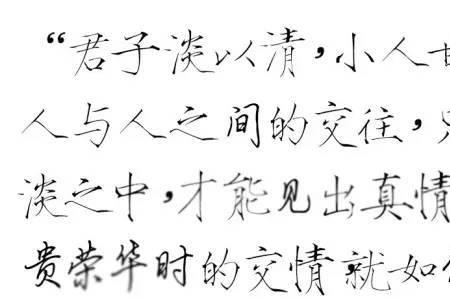 “君子淡以清，小人
人与人之间的交往，
淡之中，才能见出真情
贵荣华时的交情就如